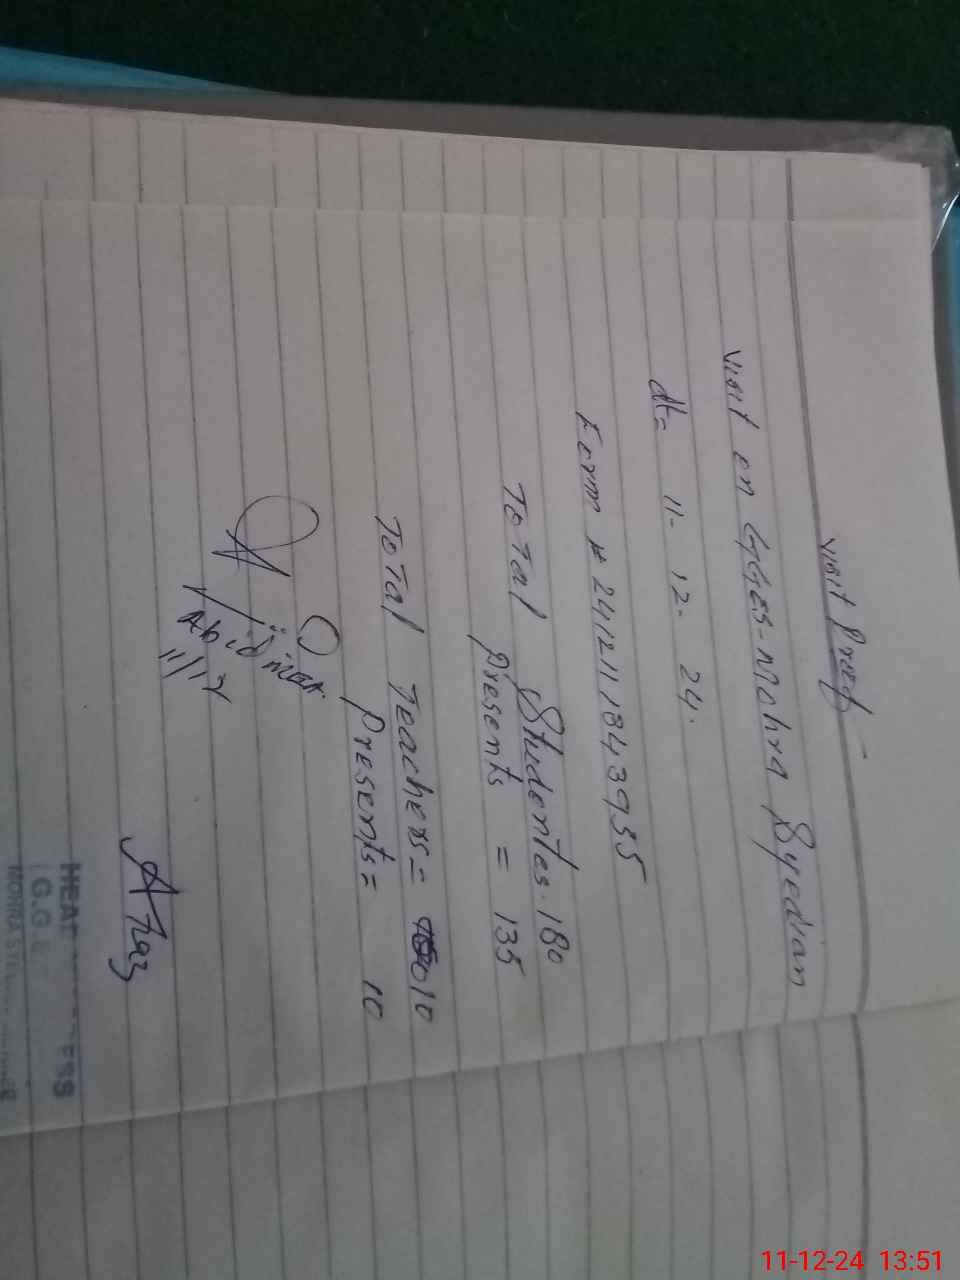 visit Proof
visit on GGES-Mohra Syedian
dt= 11- 12- 24.
Form # 241211843935
ToTal Studentes-180
Presents = 135
ToTal Teachers= 10
Presents= 10
Abid
11/12
HEAD
(G.G.E
MOHRA
11-12-24 13:51